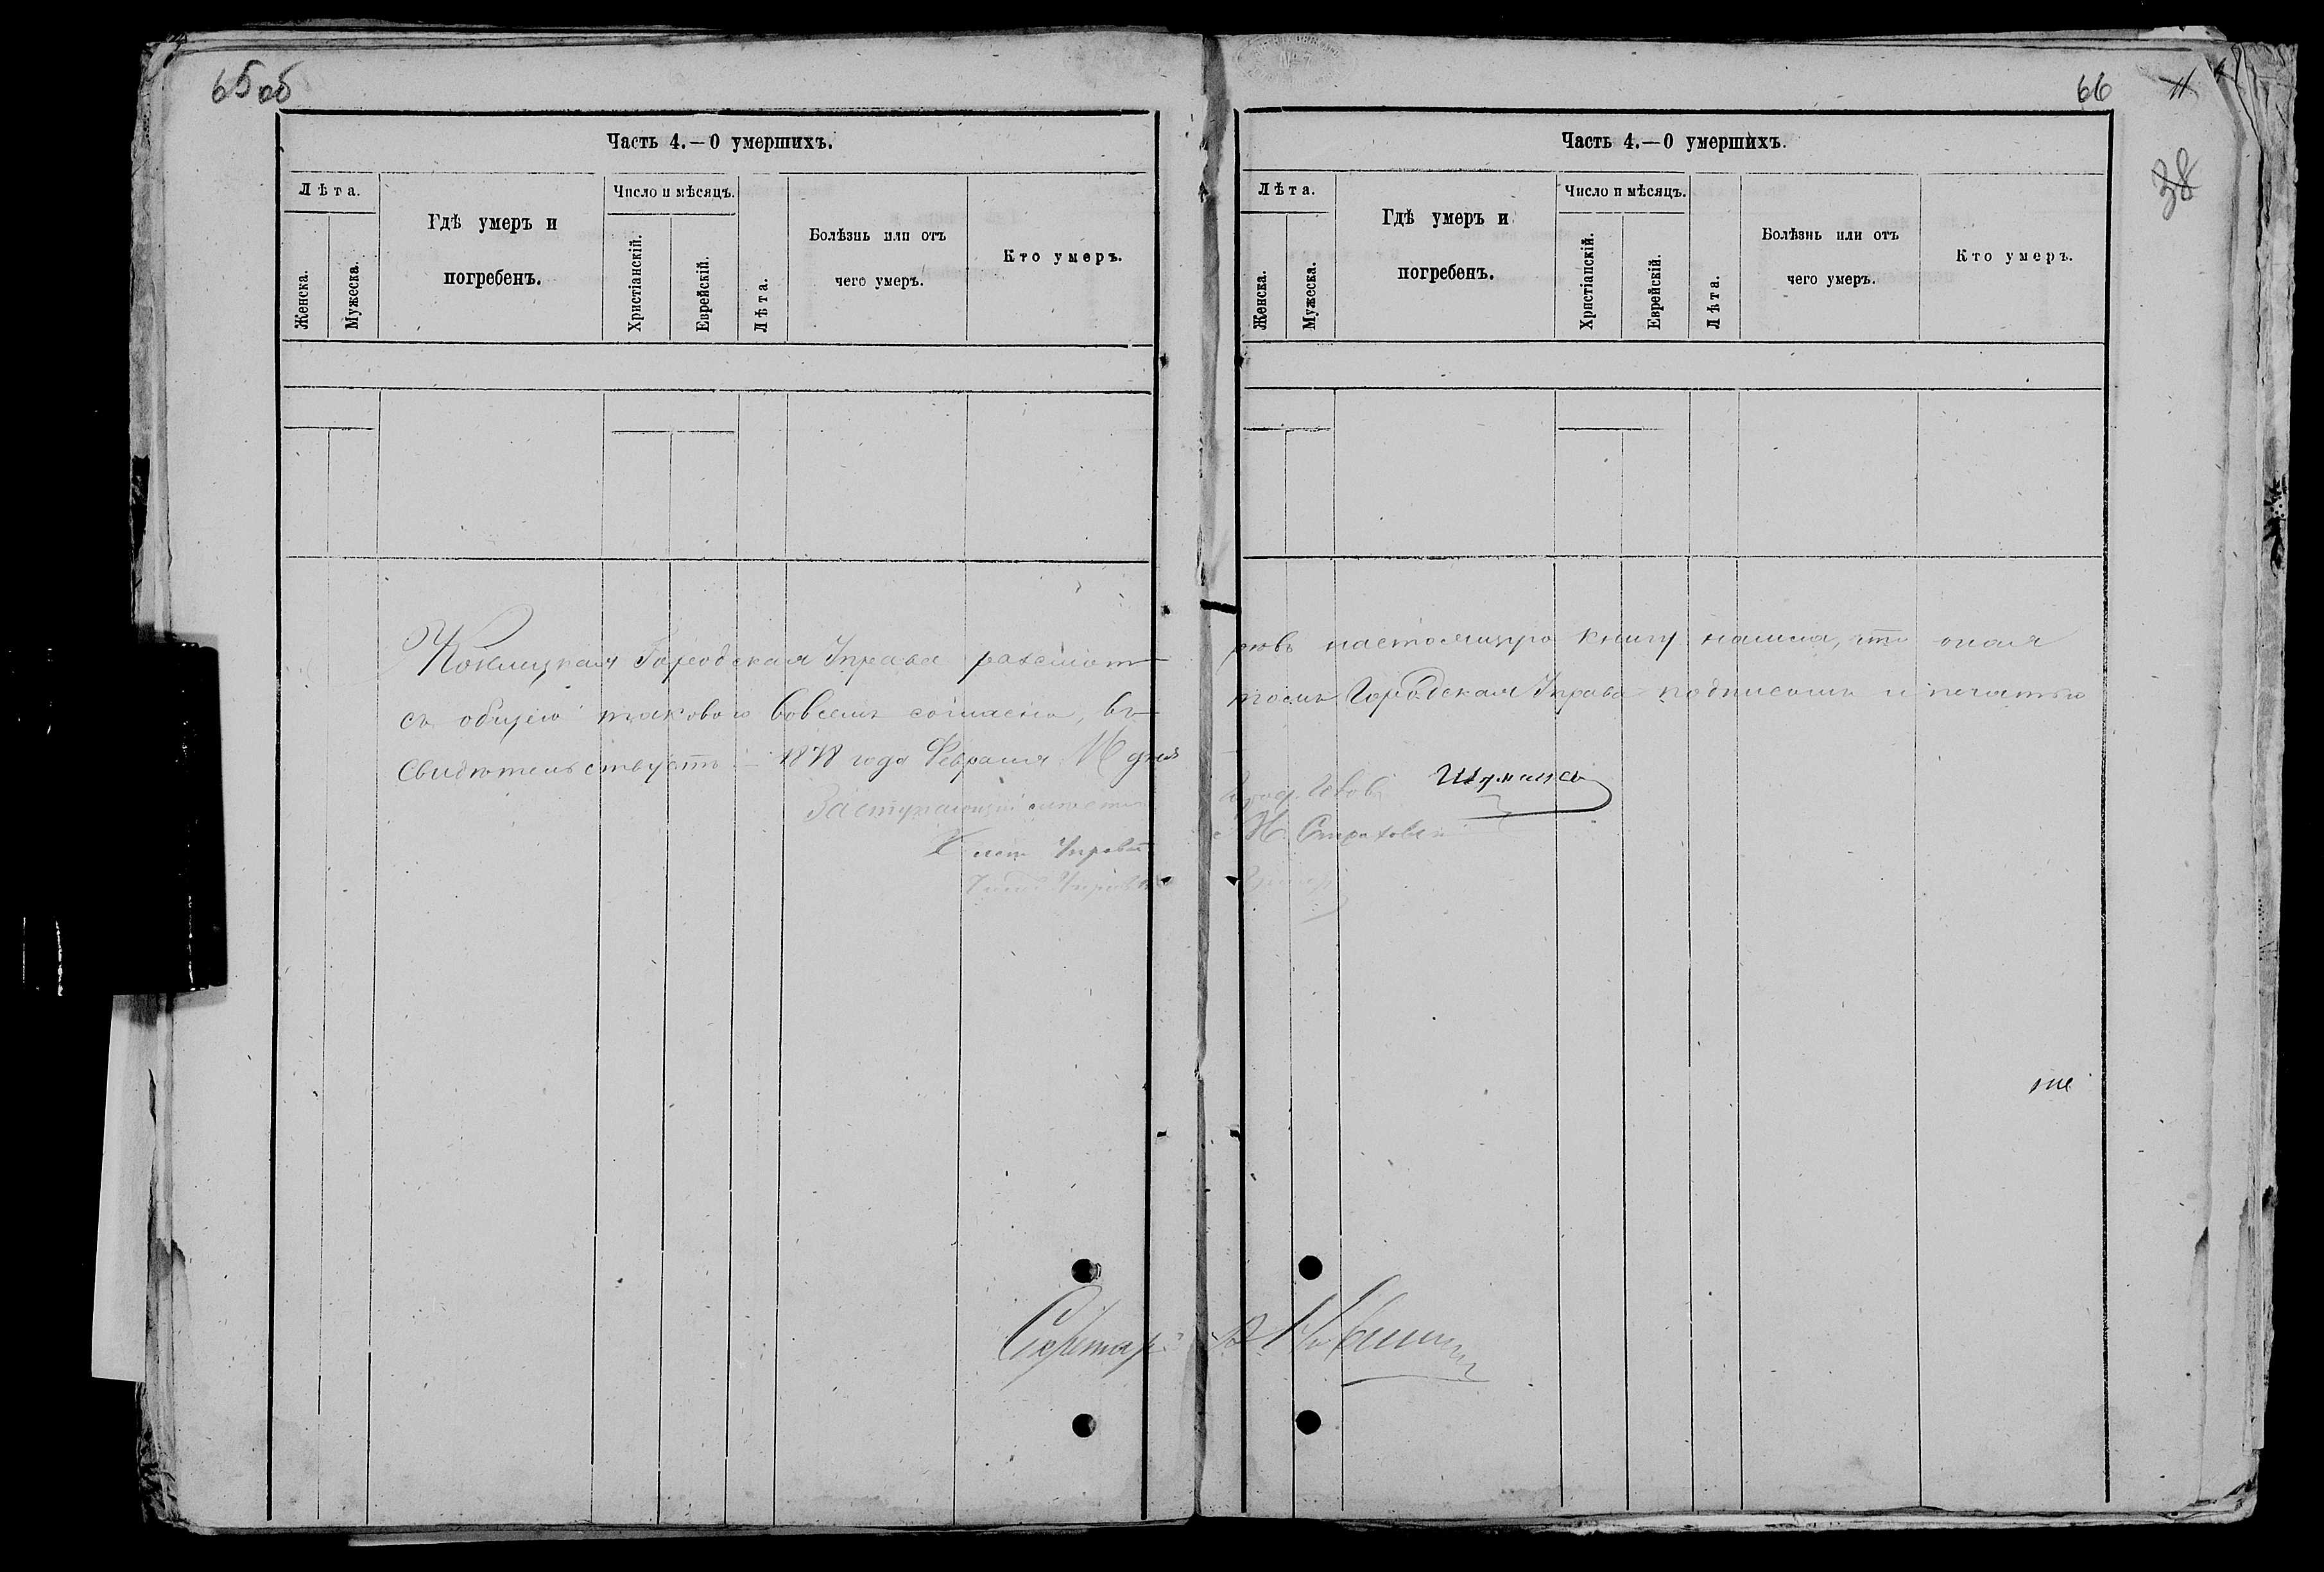 65об
Часть 4.—О умершихъ.
Лѣта.
Женска.
Мужеска.
Гдѣ умеръ и
погребенъ.
Число и мѣсяцъ.
Христіанскій.
Еврейскій.
Лѣта.
Болѣзнь или отъ
чего умеръ.
Кто умеръ.
Городская Управа разсмот
съ общею таковою вовсемъ согласна, въ
Свидѣтельствуетъ 1878 года Февраля дня
Заступающій мѣсто
Член Управы
Секретарь
66
38
Часть 4.—О умершихъ.
Лѣта.
Женска.
Мужеска.
Гдѣ умеръ и
погребенъ.
Число и мѣсяцъ.
Христіанскій.
Еврейскій.
Лѣта.
Болѣзнь или отъ
чего умеръ.
Кто умеръ.
рѣвъ настоящую книгу нашла, что оная
томъ Городская Управа подписомъ и печатью